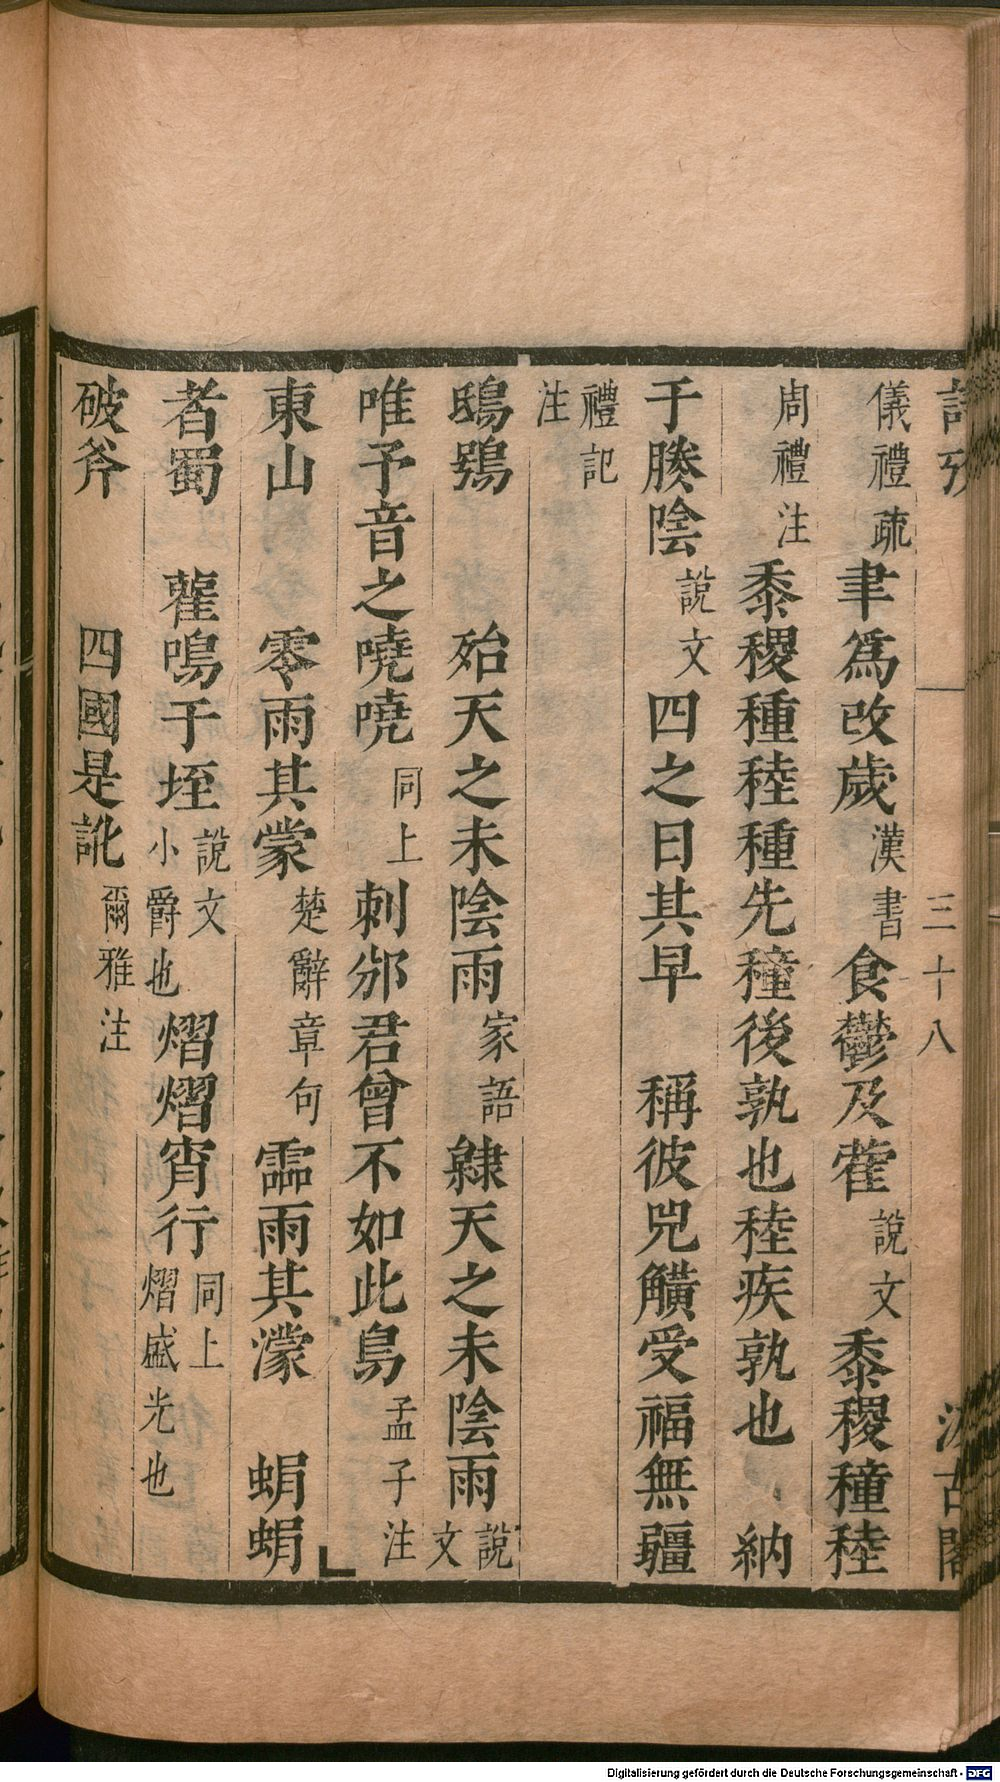 詩攷 三十八 汲古閣
儀禮疏 聿爲改歲 漢書 食鬱及藿 說文 黍稷穜稑
周禮注 黍稷種稑種先穜後孰也稑疾孰也 納
于媵陰 說文 四之日其早 稱彼兕觵受福無疆
禮記注
鴟鴞 殆天之未陰雨 家語 隸天之未陰雨 說文
唯予音之嘵嘵 同上 刺邠君曾不如此鳥 孟子注
東山 零雨其蒙 楚辭章句 霝雨其濛 蜎蜎
者蜀 雚鳴于垤 說文 小爵也 熠熠宵行 同上 熠盛光也
破斧 四國是訛 爾雅注
Digitalisierung gefördert durch die Deutsche Forschungsgemeinschaft - DFG